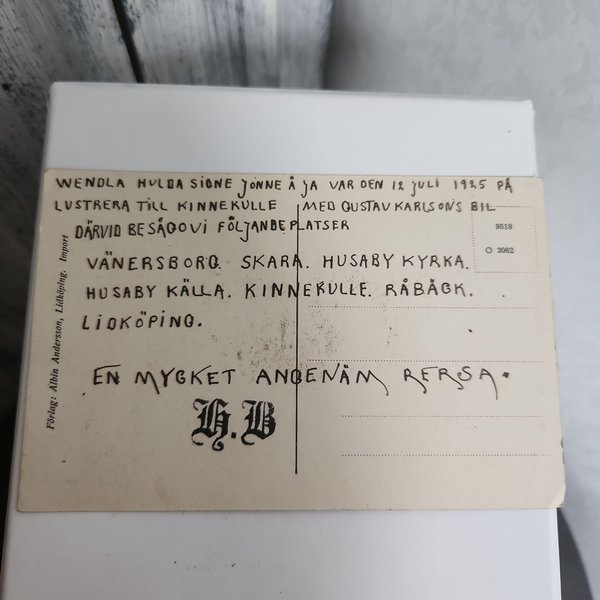 WENDLA HULDA SIGNE JONNE Å JA VAR DEN 12 JULI 1925 PÅ
LUSTRERA TILL KINNEKULLE MED GUSTAV KARLSONS BIL
DÄRVID BESÅGO VI FÖLJANDE PLATSER
VÄNERSBORG. SKARA. HUSABY KYRKA.
HUSABY KÄLLA. KINNEKULLE. RÅBÄCK.
LIDKÖPING.
EN MYCKET ANGENÄM RERSA.
H.B
9518
O 3062
Förlag: Albin Andersson, Lidköping. Import